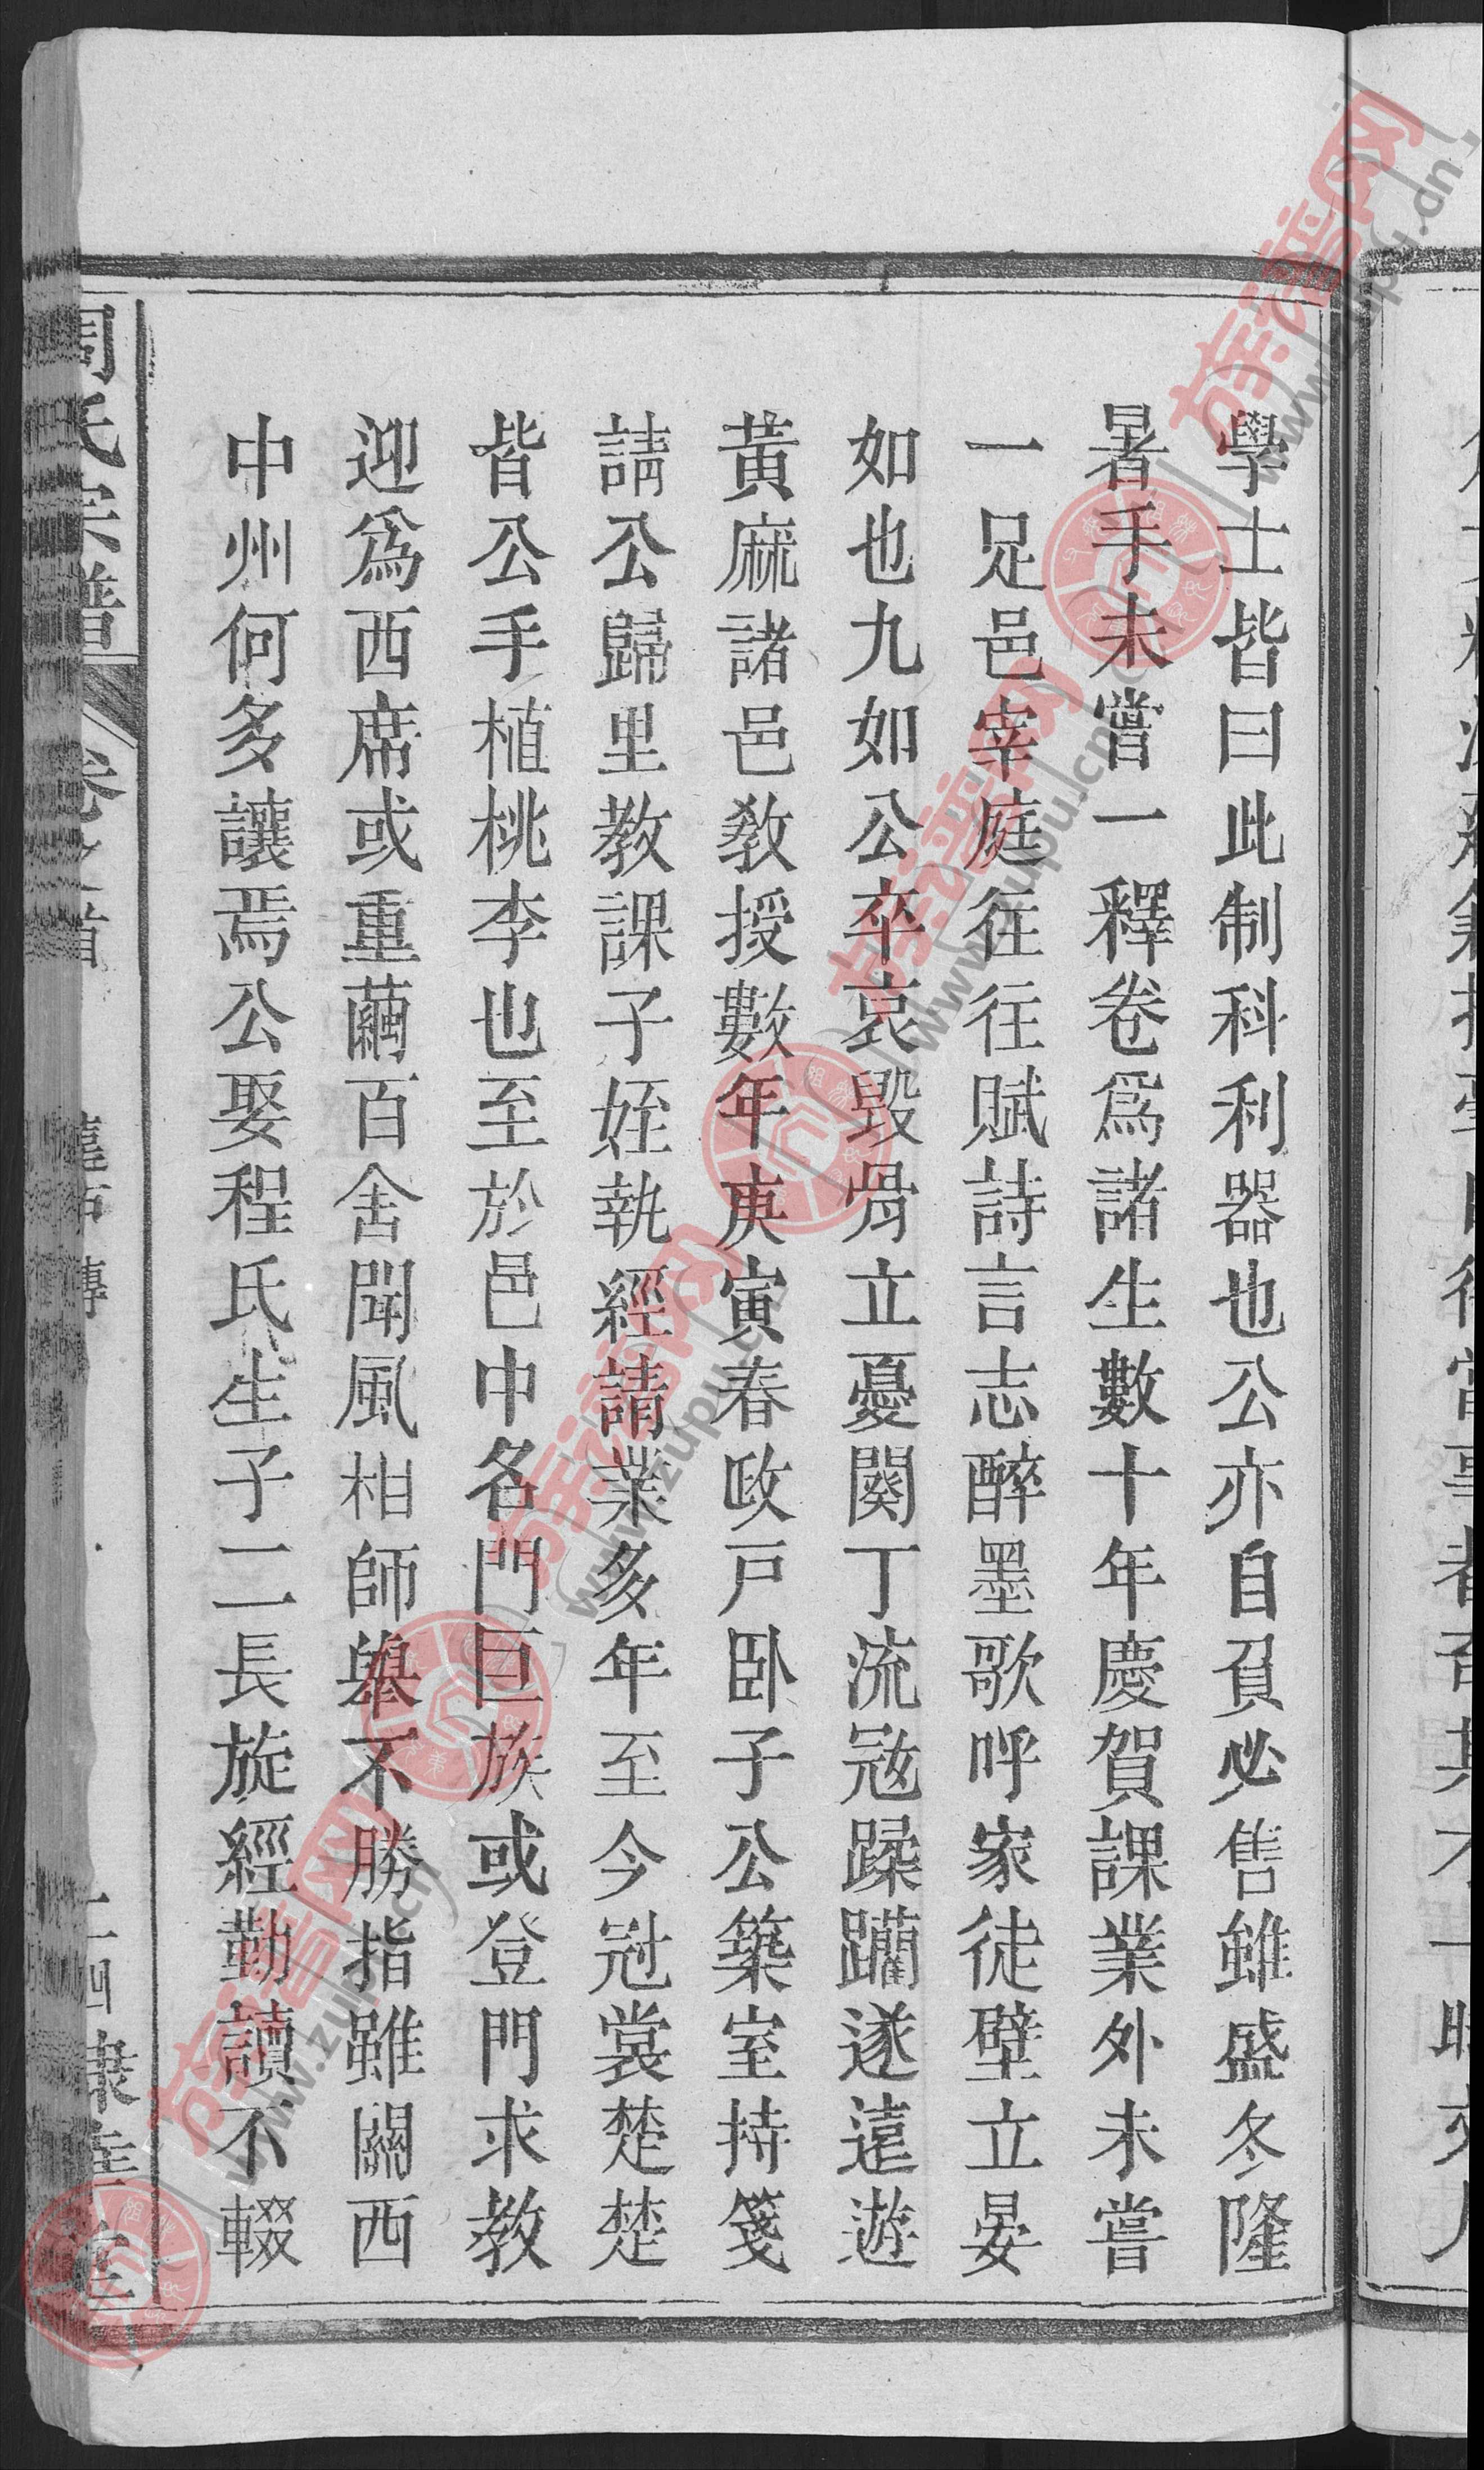 學士皆曰此制科利器也公亦自負必售雖盛冬隆
暑手未嘗一釋卷爲諸生數十年慶賀課業外未嘗
一足邑宰庭往往賦詩言志醉墨歌呼家徒壁立晏
如也九如公卒哀毀骨立憂闋丁流寇蹂躪遂遠遊
黃麻諸邑敎授數年庚寅春政戶臥子公築室持箋
請公歸里教課子姪執經請業多年至今冠裳楚楚
皆公手植桃李也至於邑中名門巨族或登門求教
迎爲西席或重繭百舍聞風相師舉不勝指雖關西
中州何多讓焉公娶程氏生子二長旋經勤讀不輟
周氏宗譜
卷之首
傳